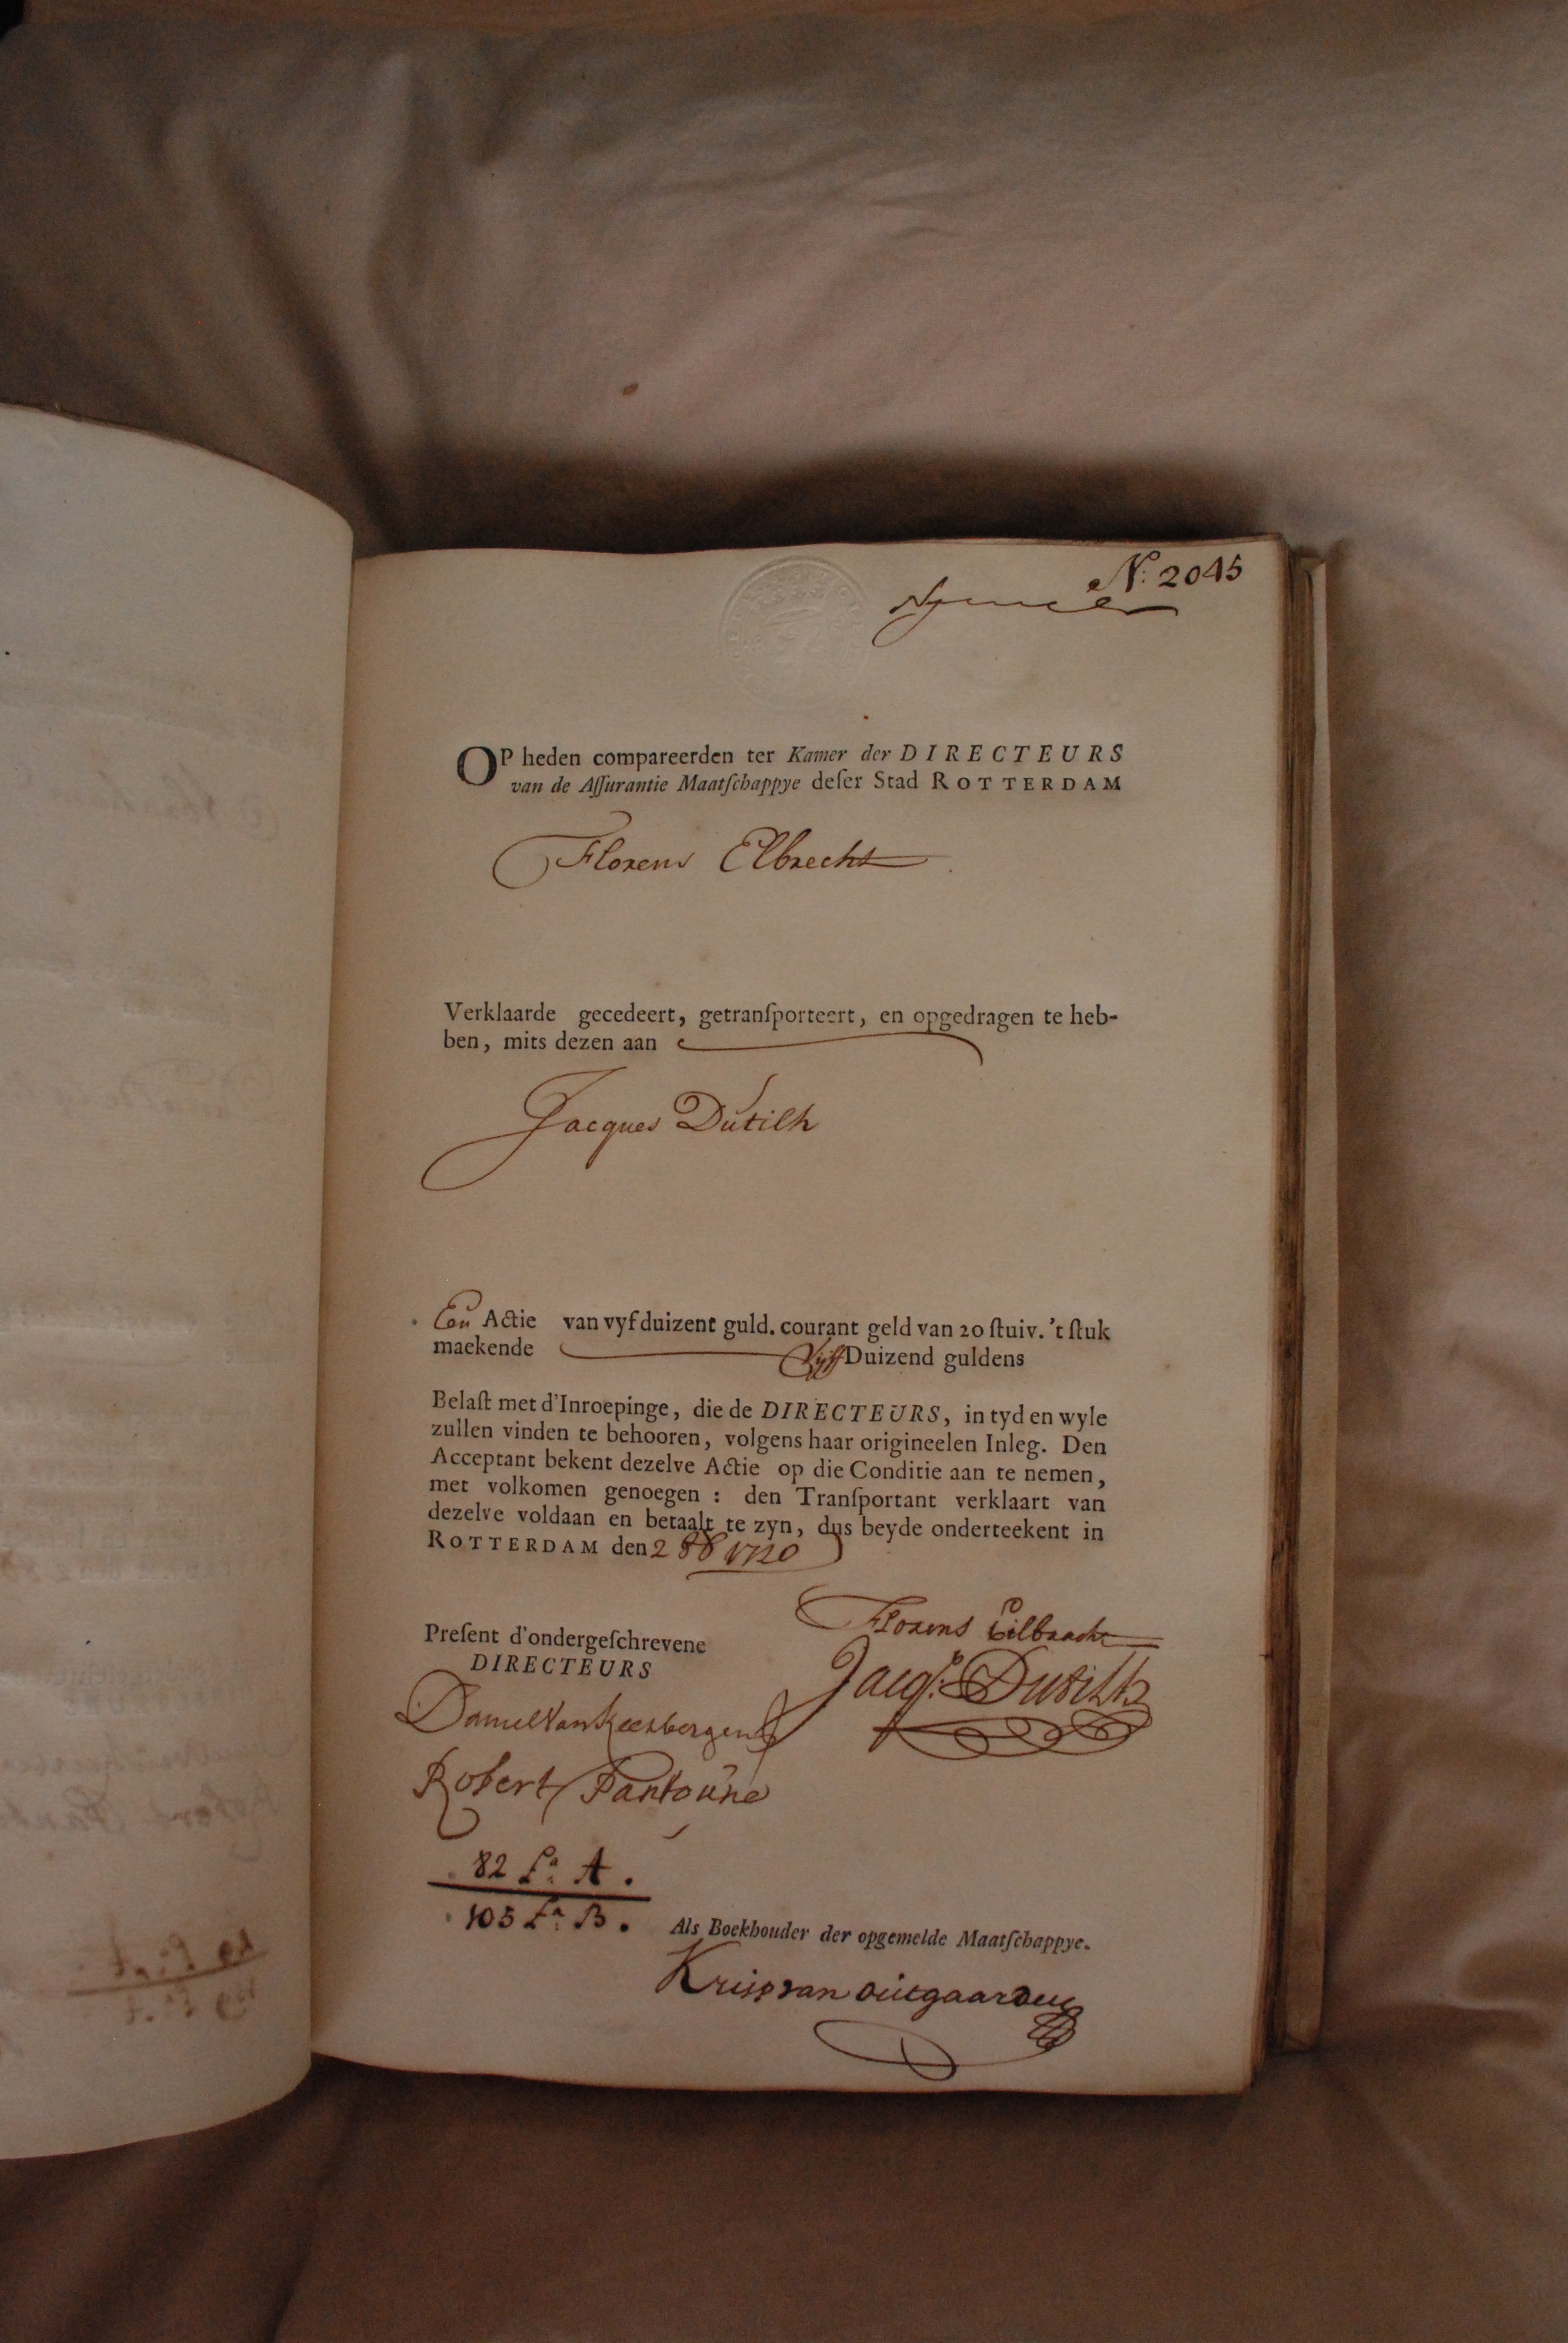 N: 2045
OP heden compareerden ter Kamer der DIRECTEURS
van de Aſſurantie Maatſchappye deſer Stad ROTTERDAM
Florens Elbrecht
Verklaarde gecedeert, getranſporteert, en opgedragen te heb-
ben, mits dezen aan
Jacques Dutilh
Een Actie van vyf duizent guld. courant geld van 20 ſtuiv. 't ſtuk
maekende Vyff Duizend guldens
Belaſt met d'Inroepinge, die de DIRECTEURS, in tyd en wyle
zullen vinden te behooren, volgens haar origineelen Inleg. Den
Acceptant bekent dezelve Actie op die Conditie aan te nemen,
met volkomen genoegen : den Tranſportant verklaart van
dezelve voldaan en betaalt te zyn, dus beyde onderteekent in
ROTTERDAM den 2 1720
Florens Eilbracht
Preſent d'ondergeſchrevene
DIRECTEURS
Jacq.s Dutilh
Daniel Van Keersbergen
Robert Pantoune
82 L.a A.
105 L.a B.
Als Boekhouder der opgemelde Maatſchappye.
Kriss van outgaarden